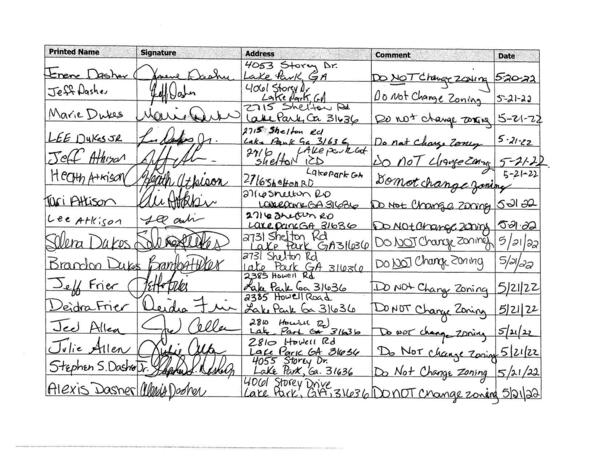 Printed Name Signature Address Comment Date
4053 Storey Dr.
Irene Dasher Irene Dasher Lake Park, GA Do NOT Change Zoning 5-20-22
4061 Storey Dr
Jeff Dasher Jeff Dasher Lake Park, GA Do Not Change Zoning 5-21-22
2715 Shelton Rd
Marie Dukes Marie Dukes Lake Park, Ga. 31636 Do not change zoning 5-21-22
2715 Shelton Rd
LEE DUKES JR Lee Dukes Jr. Lake Park Ga 31636 Do not change Zoning 5-21-22
2716 Lake Park Ga
Jeff Atkison Shelton RD Do NOT Change Zoning 5-21-22
Lake Park GA 5-21-22
Heath Atkison Heath Atkinson 2716 Shelton RD Do not change zoning
2716 Shelton RD
Tari Atkison Lake Park GA 31636 Do Not Change Zoning 5-21-22
2716 Shelton RD
Lee Atkison Lake Park GA 31636 Do Not Change Zoning 5-21-22
2731 Shelton Rd
Selera Dukes Lake Park GA 31636 Do NOT Change Zoning 5/21/22
2731 Shelton Rd
Brandon Dukes Brandon Dukes Lake Park GA 31636 Do NOT Change Zoning 5/21/22
2385 Howell Rd
Jeff Frier Lake Park Ga 31636 DO NOT Change Zoning 5/21/22
2385 Howell Road
Deidra Frier Deidra Frier Lake Park GA 31636 DO NOT Change Zoning 5/21/22
2810 Howell Rd
Joel Allen Joel Allen Lake Park GA 31636 Do not change zoning 5/21/22
2810 Howell Rd
Julie Allen Julie Allen Lake Park GA 31636 Do Not change zoning 5/21/22
4055 Storey Dr
Stephen S. Dasher Jr. Lake Park, Ga. 31636 Do Not Change Zoning 5/21/22
4061 Storey Drive
Alexis Dasher Alexis Dasher Lake Park, GA, 31636 DO NOT change zoning 5/21/22